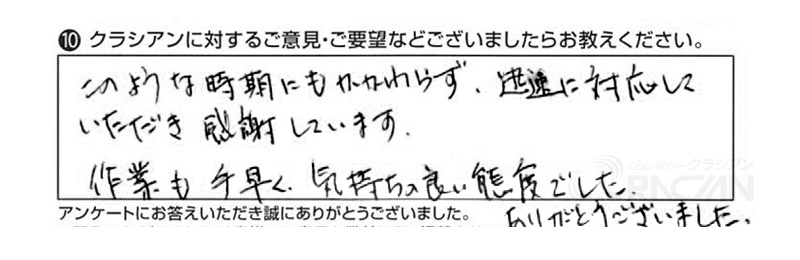 ⑩ クラシアンに対するご意見・ご要望などございましたらお教えください。
このような時期にもかかわらず、迅速に対応して
いただき感謝しています。
作業も手早く、気持ちの良い態度でした。
くらし安心 クラシアン
QRACIAN
アンケートにお答えいただき誠にありがとうございました。
ありがとうございました。